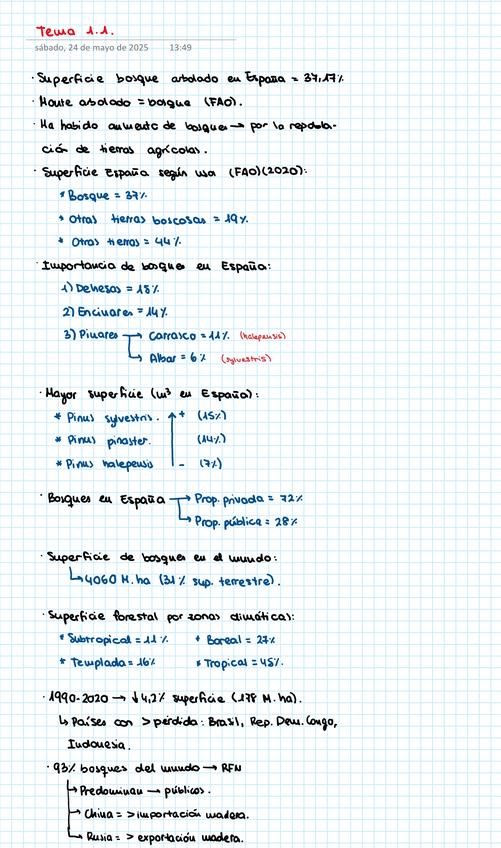 Tema 1.1.
sábado, 24 de mayo de 2025 13:49
· Superficie bosque arbolado en España = 37,17%
· Monte arbolado = bosque (FAO).
· Ha habido aumento de bosques → por la repobla-
ción de tierras agrícolas.
· Superficie España según uso (FAO)(2020):
* Bosque = 37%
* Otras tierras boscosas = 19%
* Otras tierras = 44%
· Importancia de bosques en España:
1) Dehesas = 18%
2) Encinares = 14%
3) Pinares → Carrasco = 11% (halepensis)
↳ Albar = 6% (sylvestris)
· Mayor superficie (m³ en España):
* Pinus sylvestris. + (15%)
* Pinus pinaster. (14%)
* Pinus halepensis - (7%)
· Bosques en España → Prop. privada = 72%
↳ Prop. pública = 28%
· Superficie de bosques en el mundo:
↳ 4060 M.ha (31% sup. terrestre).
· Superficie forestal por zonas climáticas:
* Subtropical = 11% * Boreal = 27%
* Templada = 16% * Tropical = 45%.
· 1990-2020 → ↓4,2% superficie (178 M.ha).
↳ Países con > pérdida: Brasil, Rep. Dem. Congo,
Indonesia.
· 93% bosques del mundo → RFN
→ Predominan → públicos.
→ China = > importación madera.
→ Rusia = > exportación madera.